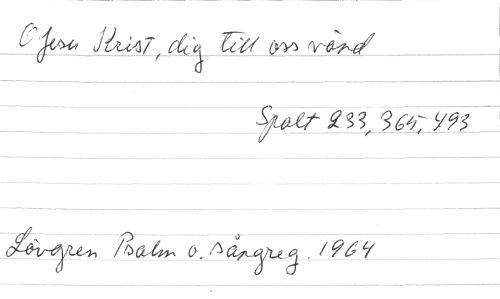 O Jesu Krist, dig till oss vänd
Spalt 233, 365, 493
Lövgren Psalm o. sångreg. 1964